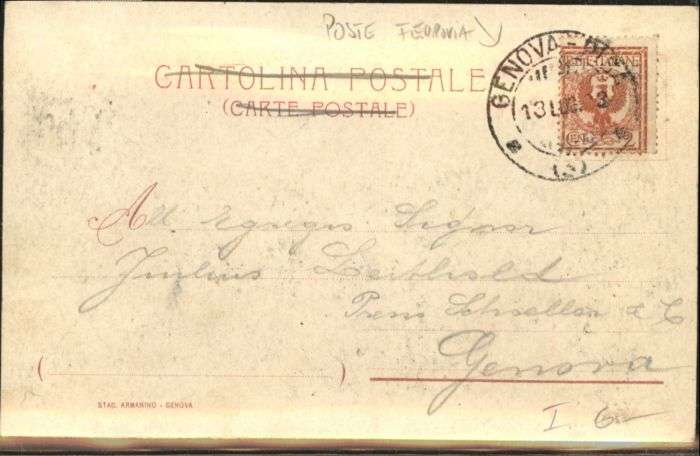 POSTE FERROVIA
CARTOLINA POSTALE
(CARTE POSTALE)
GENOVA
13 LUG 3
(3)
All Egregio Signor
Julius Leithold
Presso Schoeller & C
Genova
STAB. ARMANINO - GENOVA
I 6-